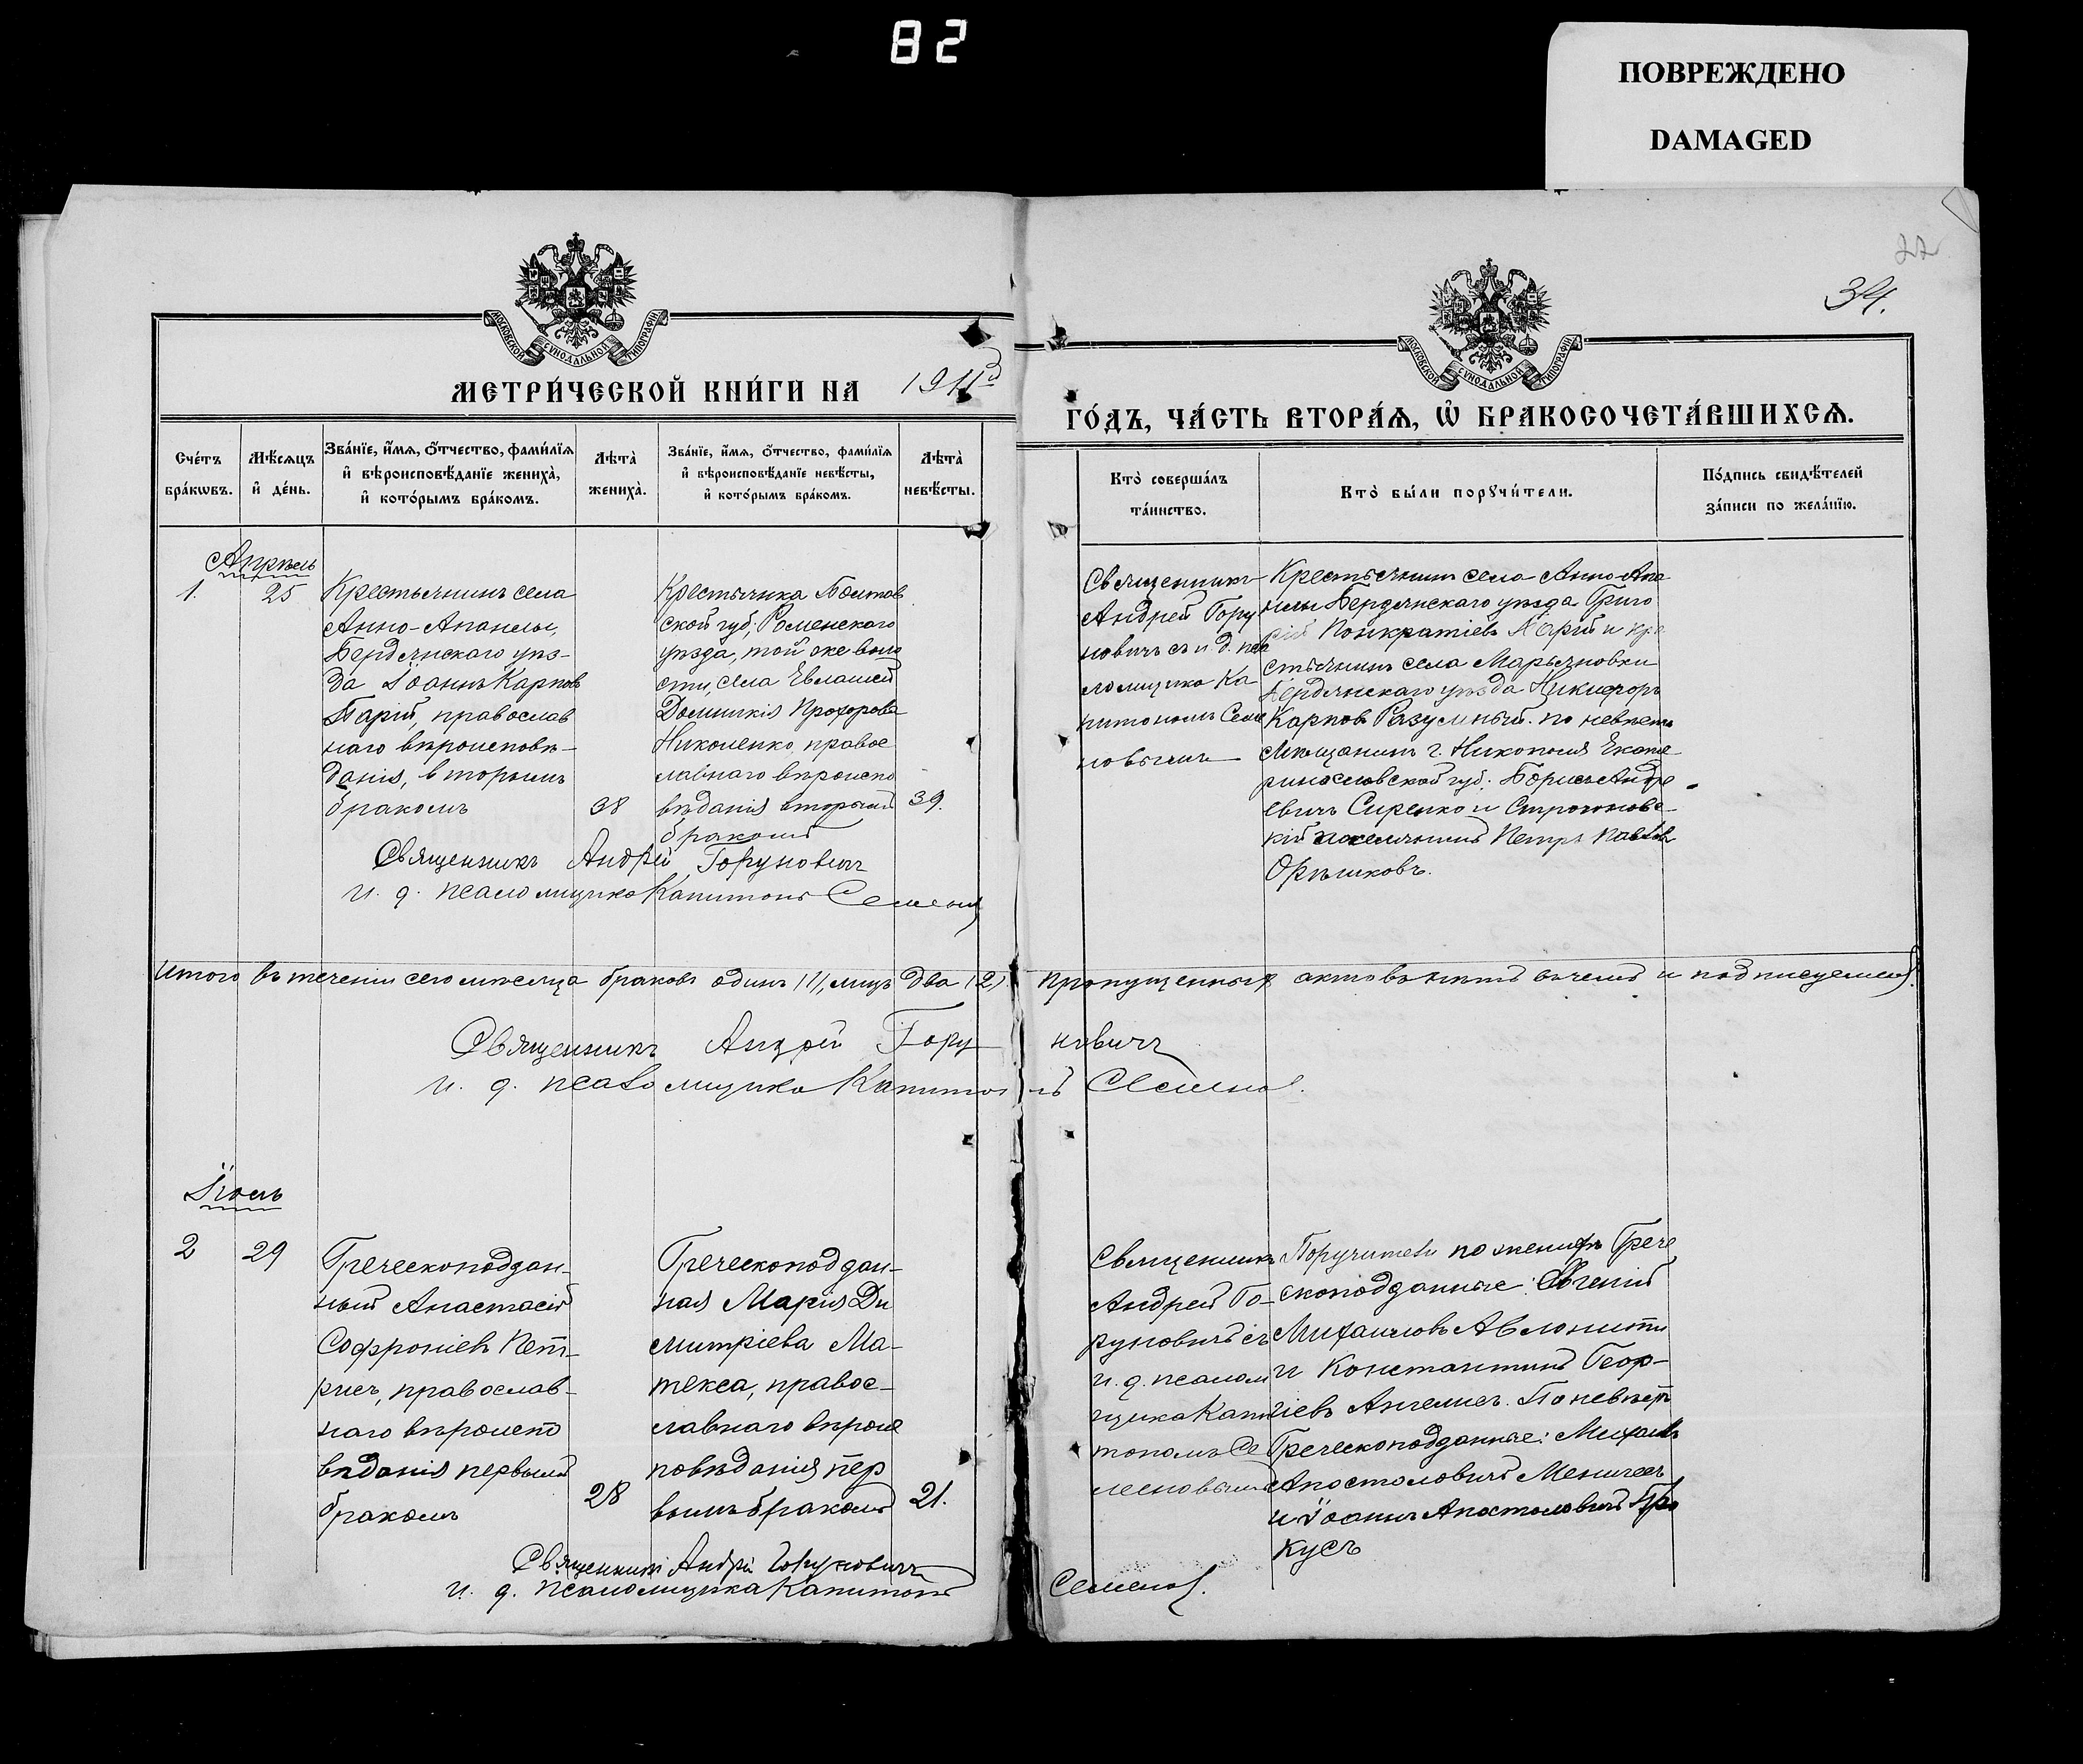 82
ПОВРЕЖДЕНО
DAMAGED
22
34.
МОСКОВСКОЙ СѴНОДАЛЬНОЙ ТИПОГРАФІИ
МОСКОВСКОЙ СѴНОДАЛЬНОЙ ТИПОГРАФІИ
МЕТРИ́ЧЕСКОЙ КНИ́ГИ НА 1911й
ГО́ДЪ, ЧА́СТЬ ВТОРА́Я, Ѡ҆ БРАКОСОЧЕТА́ВШИХСѦ.
Сче́тъ бра́кѡвъ.
Мѣ́сѧцъ и҆ де́нь.
Зва́нїе, и҆́мѧ, ѻ҆́тчество, фами́лїѧ и҆ вѣроисповѣ́данїе жениха̀, и҆ кото́рымъ бра́комъ.
Лѣ́та̀ жениха̀.
Зва́нїе, и҆́мѧ, ѻ҆́тчество, фами́лїѧ и҆ вѣроисповѣ́данїе невѣ́сты, и҆ кото́рымъ бра́комъ.
Лѣ́та̀ невѣ́сты.
Кто̀ соверша́лъ та́инство.
Кто̀ бы́ли порꙋчи́тели.
По́дпись свидѣ́телей за́писи по жела́нїю.
Апрѣль
1.
25
Крестьянинъ села
Анно-Апанлы,
Бердянскаго уѣз-
да Іоаннъ Карповъ
Парій, православ
наго вѣроисповѣ-
данія, вторымъ
бракомъ
38
Крестьянка Полтав
ской губ., Роменскаго
уѣзда, той же воло
сти, села Евлашей
Домникія Прохорова
Николенко, правос
лавнаго вѣроиспо
вѣданія вторымъ
бракомъ
39.
Священникъ
Андрей Гору
новичъ съ и. д. пса
ломщика Ка
питономъ Семе
новымъ
Крестьянинъ села Анно-Апа
нлы Бердянскаго уѣзда Григо
рій Понкратіевъ Парій и кре
стьянинъ села Марьяновки
Бердянскаго уѣзда Никифоръ
Карповъ Разумный. по невѣстѣ
Мѣщанинъ г. Никополя Екате
ринославской губ. Борисъ Андре
евичъ Сиренко и
кій поселянинъ Петръ Павловъ
Орѣшковъ.
Священникъ Андрей Горуновичъ
и. д. псаломщика Капитонъ Семенов
Итого въ теченіи сего мѣсяца браковъ одинъ /1/, лицъ два /2/ пропущенныхъ актовъ нѣтъ въ чемъ и подписуемся.
Священникъ Андрей Горуновичъ
и. д. псаломщика Капитонъ Семенов.
Іюль
2
29
Греческоподдан-
ный Анастасій
Софроніевъ Пет-
рисъ, православ-
наго вѣроиспо
вѣданія первымъ
бракомъ
28
Греческоподдан-
ная Марія Ди
митріева Ма-
текса, правос-
лавнаго вѣроис
повѣданія пер
вымъ бракомъ
21.
Священникъ
Андрей Го-
руновичъ съ
и. д. псалом
щика Капи
тономъ Се
меновымъ
Поручители по женихѣ Грече
скоподданные: Евгеній
Михаиловъ Авлонити
и Константинъ Геор-
гіевъ Ангелисъ. По невѣстѣ
Греческоподданные: Михаилъ
Апостоловичъ
и Іоаннъ Апостоловичъ Бра
кусъ
Священникъ Андрей Горуновичъ
и. д. псаломщика Капитонъ Семенов.